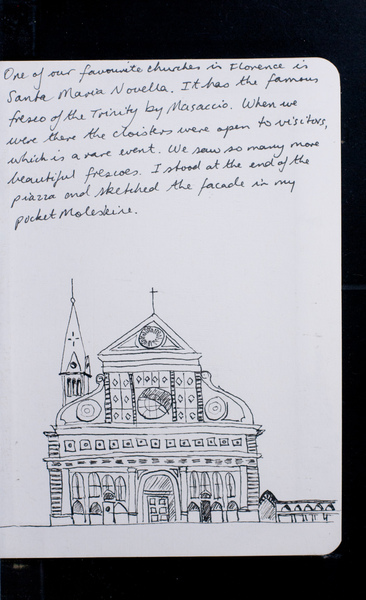 One of our favourite churches in Florence is
Santa Maria Novella. It has the famous
fresco of the Trinity by Masaccio. When we
were there the cloisters were open to visitors,
which is a rare event. We saw so many more
beautiful frescoes. I stood at the end of the
piazza and sketched the facade in my
pocket Moleskine.